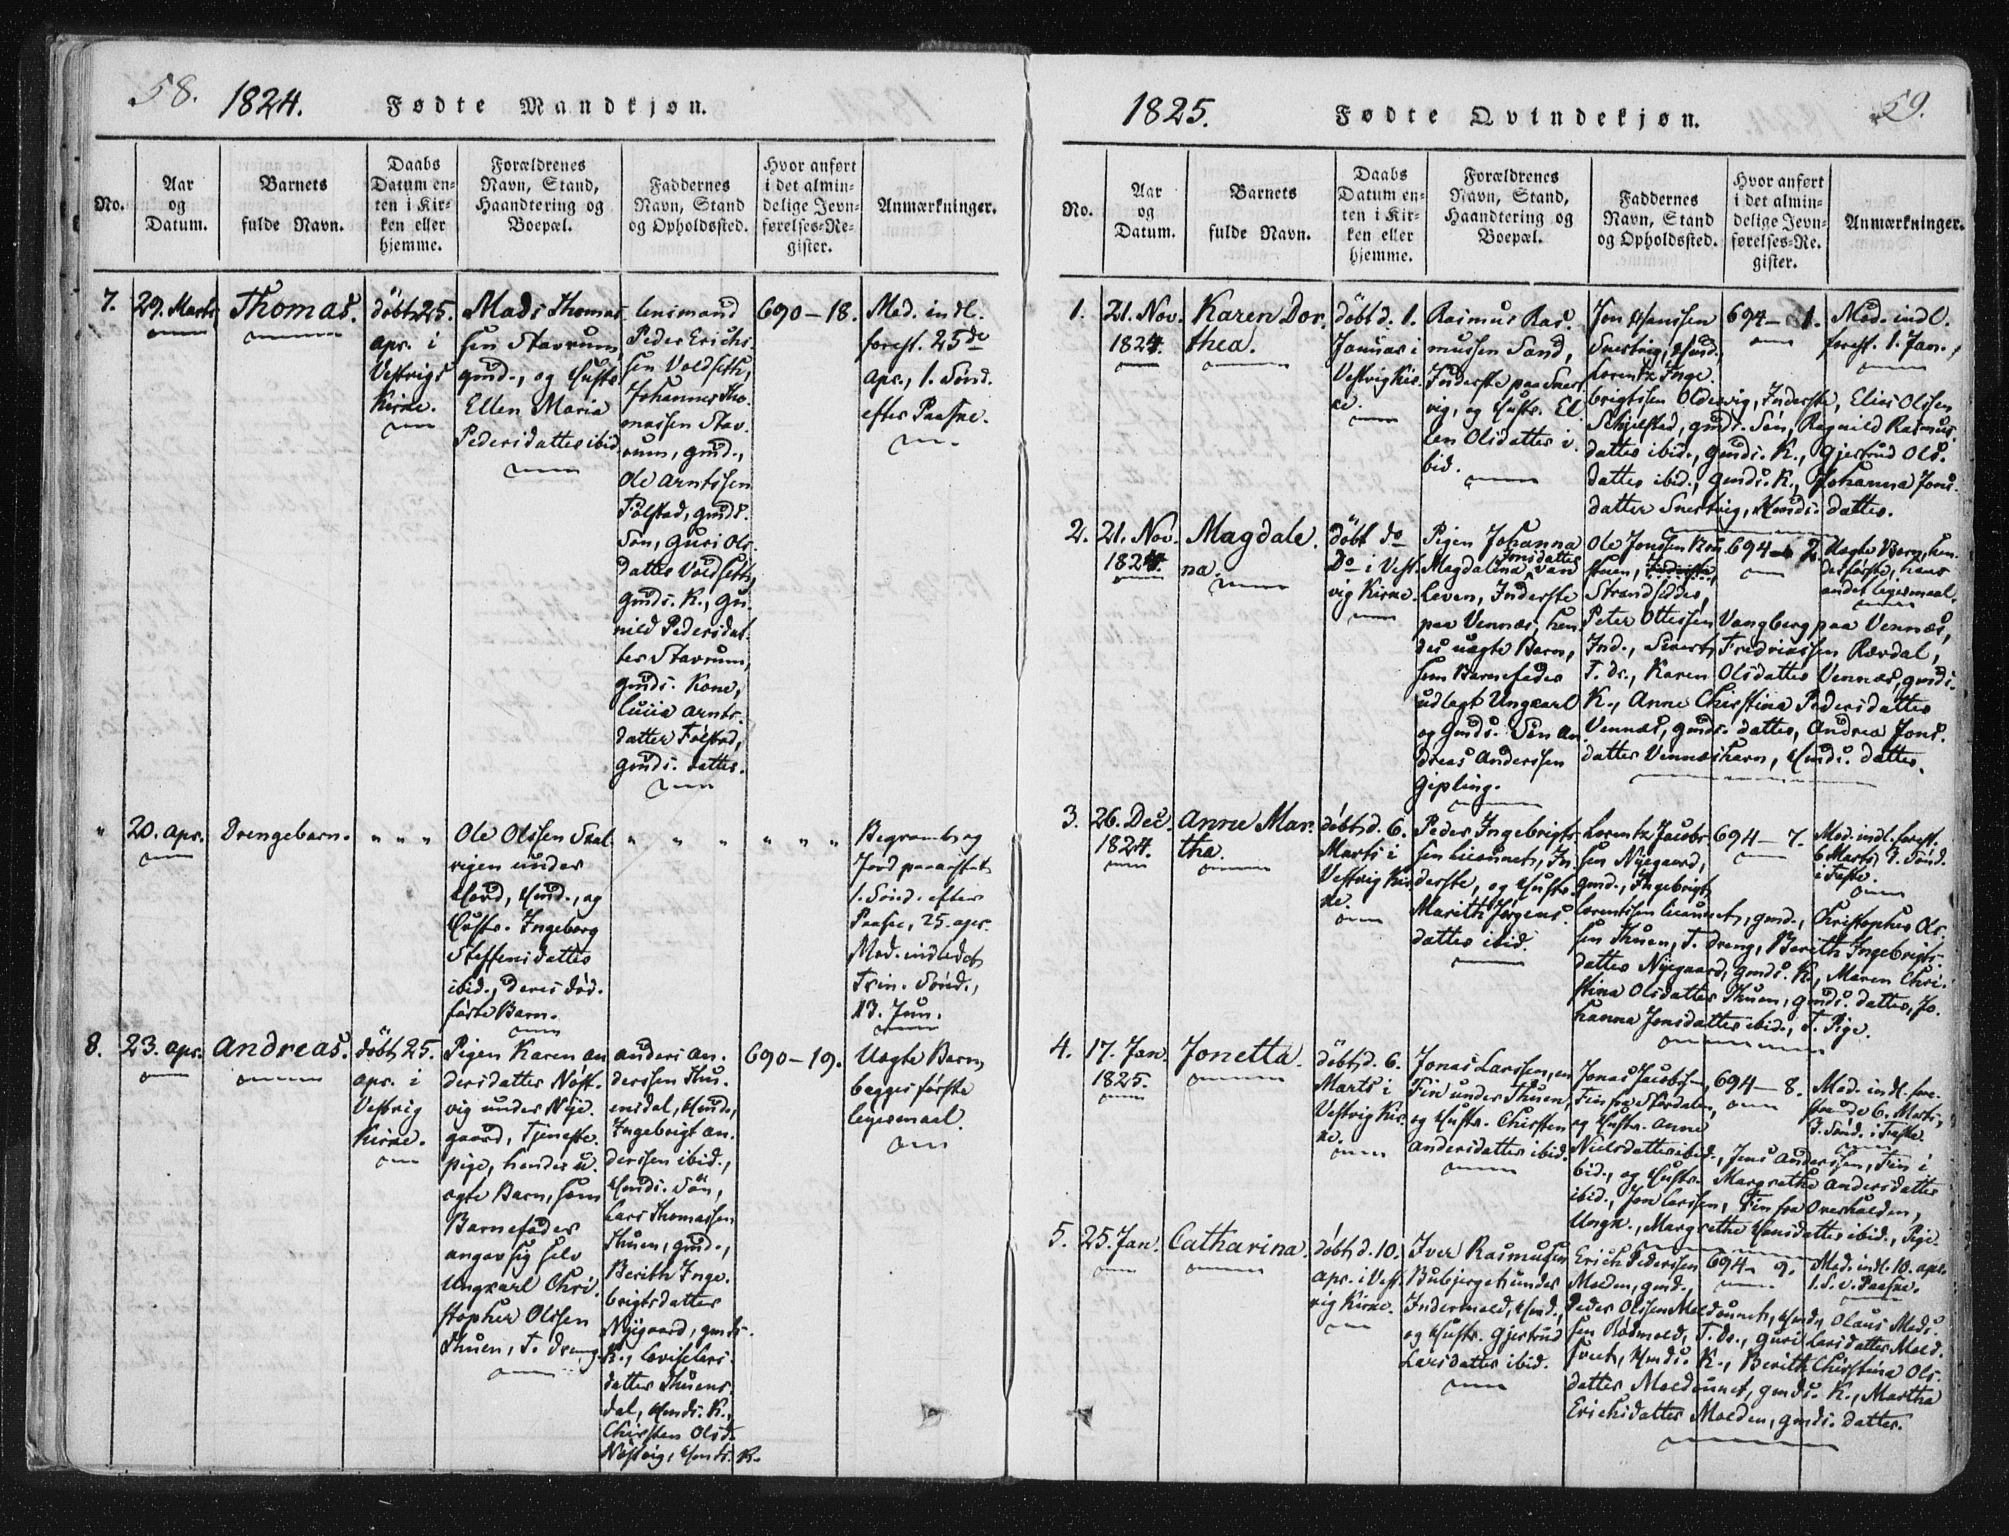 58.
1824.
Fødte Mandkjøn.
No.
Aar
og
Datum.
Barnets
fulde Navn.
Daabs
Datum en-
ten i Kir-
ken eller
hjemme.
Forældrenes
Navn, Stand,
Haandtering og
Boepæl.
Faddernes
Navn, Stand
og Opholdssted.
Hvor anført
i det almin-
delige Jevn-
førelses-Re-
gister.
Anmærkninger.
7.
29. Marts
Thomas.
døbt 25.
apr. i
Vestvigs
Kirke.
Mads Thomas
sen Stavrum,
gmd., og Hustr.
Ellen Maria
Pedersdatter ibid.
lensmand
Peder Erich-
sen Voldseth,
Johannes Tho-
massen Stav-
rum, gmd.,
Ole Arntssen
Følstad, gmds.
Søn, Guri Ols-
datter Voldseth,
gmds. K., Gu-
nild Pedersdat-
ter Stavrum,
gmds. Kone,
Lucia Arnts-
datter Følstad,
gmds. datter.
690 — 18.
Mod. indl.
forest. 25de
Apr., 1. Sønd.
efter Paaske.
"
20. apr.
Drengebarn.
" " "
Ole Olssen
rigen under
Hovd, Hmd., og
Hustr. Ingeborg
Steffensdatter
ibid., deres død-
fødte Barn.
" " " "
" " "
Begravet og
Jord paakastet
1. Sønd. efter
Paaske, 25. apr.
Mod. indledet
Trin. Sønd.,
13. Jun.
8.
23. apr.
Andreas.
døbt 25.
apr. i
Vestvig
Kirke.
Pigen Karen An
dersdatter Nøst-
vig under Nye-
gaard, Tjeneste
pige, hendes u-
ægte Barn, som
Barnefader
angav sig selv
Ungkarl Chri-
stopher Olssen
Thuen, T. dreng.
Anders An-
derssen Thu-
ensdal, Hmd.,
Ingebrigt An-
derssen ibid.,
Hmds. Søn,
Lars Thomassen
Thuen, gmd.,
Berith Inge-
brigtsdatter
Nyegaard, gmds.
K., Lovise Lars-
datter Thuens-
dal, Hmds. K.,
Chirsten Olsd.
Nøstvig, Hmds. K.
690 — 19.
Uægte Barn,
begges første
legesmaal.
1825.
Fødte Qvindekjøn.
59.
No.
Aar
og
Datum.
Barnets
fulde Navn.
Daabs
Datum en-
ten i Kir-
ken eller
hjemme.
Forældrenes
Navn, Stand,
Haandtering og
Boepæl.
Faddernes
Navn, Stand
og Opholdssted.
Hvor anført
i det almin-
delige Jevn-
førelses-Re-
gister.
Anmærkninger.
1.
21. Nov.
1824.
Karen Dor-
thea.
døbt d. 1.
Januar i
Vestvig Kir-
ke.
Rasmus Ras-
mussen Sand,
Inderste paa Sner
vig, og Hustr. El
len Olsdatter i-
bid.
Jon Hanssen
Snertvig, Hmd.,
Lorentz Inge-
brigtsen Oldervig, Inderste, Elias Olssen
Schjelstad, gmds. Søn, Ragnild Rasmus-
datter ibid., gmds. K., Gjertrud Ols-
datter ibid., gmds. K., Johanna Jons-
datter Snertvig, Hmds. datter.
694 — 1.
Mod. indl.
forest. 1. Jan.
2.
21. Nov.
1824.
Magdale-
na.
døbt do
Do i Vest-
vig Kirke.
Pigen Johanna
Jonsdatter
Magdalena van
Leven, Inderste
paa Vennæs, hen-
des uægte Barn,
som Barnefader
udlagt Ungkarl
og Gmds. Søn An
dreas Anderssen
Gipling.
Ole Jonssen
Strandsidder,
Peter Ottessen Vangberg paa Vennæs,
Ind., Sivert Fredrikssen Rævdal,
T. dr., Karen Olsdatter Vennæs, gmds.
K., Anne Christina Pedersdatter
Vennæs, gmds. datter, Andrea Jons-
datter Vennæshavn, Hmds. datter.
694 — 2.
Uægte Barn, hen-
des første, hans
andet legesmaal.
3.
26. Dec.
1824.
Anne Mar-
tha.
døbt d. 6.
Marts i
Vestvig Kir
ke.
Peder Ingebrigt-
sen Liaunet, In
derste, og Hustr.
Marith Jørgens-
datter ibid.
Lorentz Jacob-
sen Nyegaard,
gmd., Ingebrigt
Lorentssen Liaunet, gmd., Christopher Ols-
sen Thuen, T. dreng, Berith Ingebrigts-
datter Nyegaard, gmds. K., Maren Chri-
stina Olsdatter Thuen, gmds. datter, Jo-
hanna Jonsdatter ibid., T. Pige.
694 — 7.
Mod. indl. forest.
6 Marts, 3. Sønd.
i Faste.
4.
17. Jan.
1825.
Jonetta.
døbt d. 6.
Marts i
Vestvig Kir-
ke.
Jonas Larssen, en
Fin under Thuen,
og Hustr. Chirsten
Andersdatter ibid.
Jonas Jacobsen,
Fin fra Størdalen,
og Hustr. Anne
Nielsdatter ibid., Jens Anderssen, Fin i-
bid., og Hustr. Margrethe Andersdatter
ibid., Jon Larssen, Fin fra Overhalden,
Ungk., Margrethe Hansdatter ibid., Pige.
694 — 8.
Mod. indl. fore-
staaende 6. Marts,
3. Sønd. i Faste.
5.
25. Jan.
Catharina.
døbt d. 10.
Apr. i Vest-
vig Kirke.
Iver Rasmussen
Bubjerget under
Indermold, Hmd.,
og Hustr. Gjertrud
Larsdatter ibid.
Erich Pederssen
Molden, gmd.,
Peder Olssen Moldounet, Hmd., Olaus Mads-
sen Rødmold, T. dr., Guri Larsdatter Mold-
sveet, Hmds. K., Berith Chirstina Ols-
datter Moldounet, gmds. K., Martha
Erichsdatter Molden, gmds. datter.
694 — 9.
Mod. indl. 10. apr.
1. S. e. Paaske.